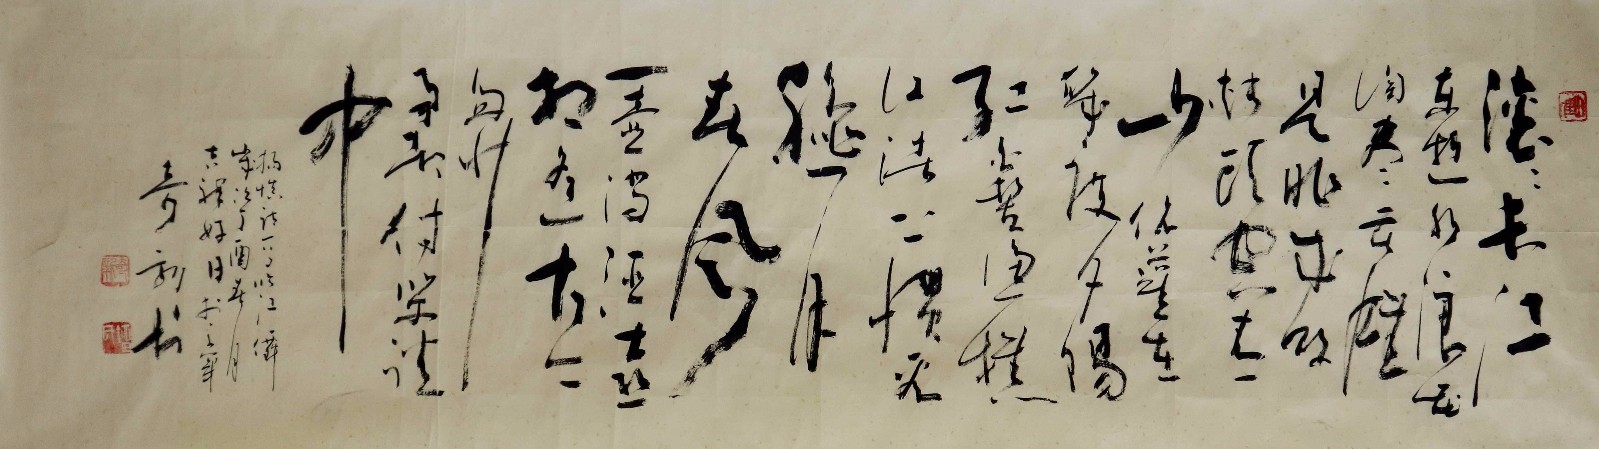 滚々长江
东逝水浪花
淘尽英雄
是非成败
转头空青
山依舊在
幾度夕陽
红白髮渔樵
江渚上惯看
秋月
春风
一壶浊酒喜
相逢古今
多少
事都付笑谈
中
杨慎词一首临江仙
岁次丁酉春月
吉祥好日於